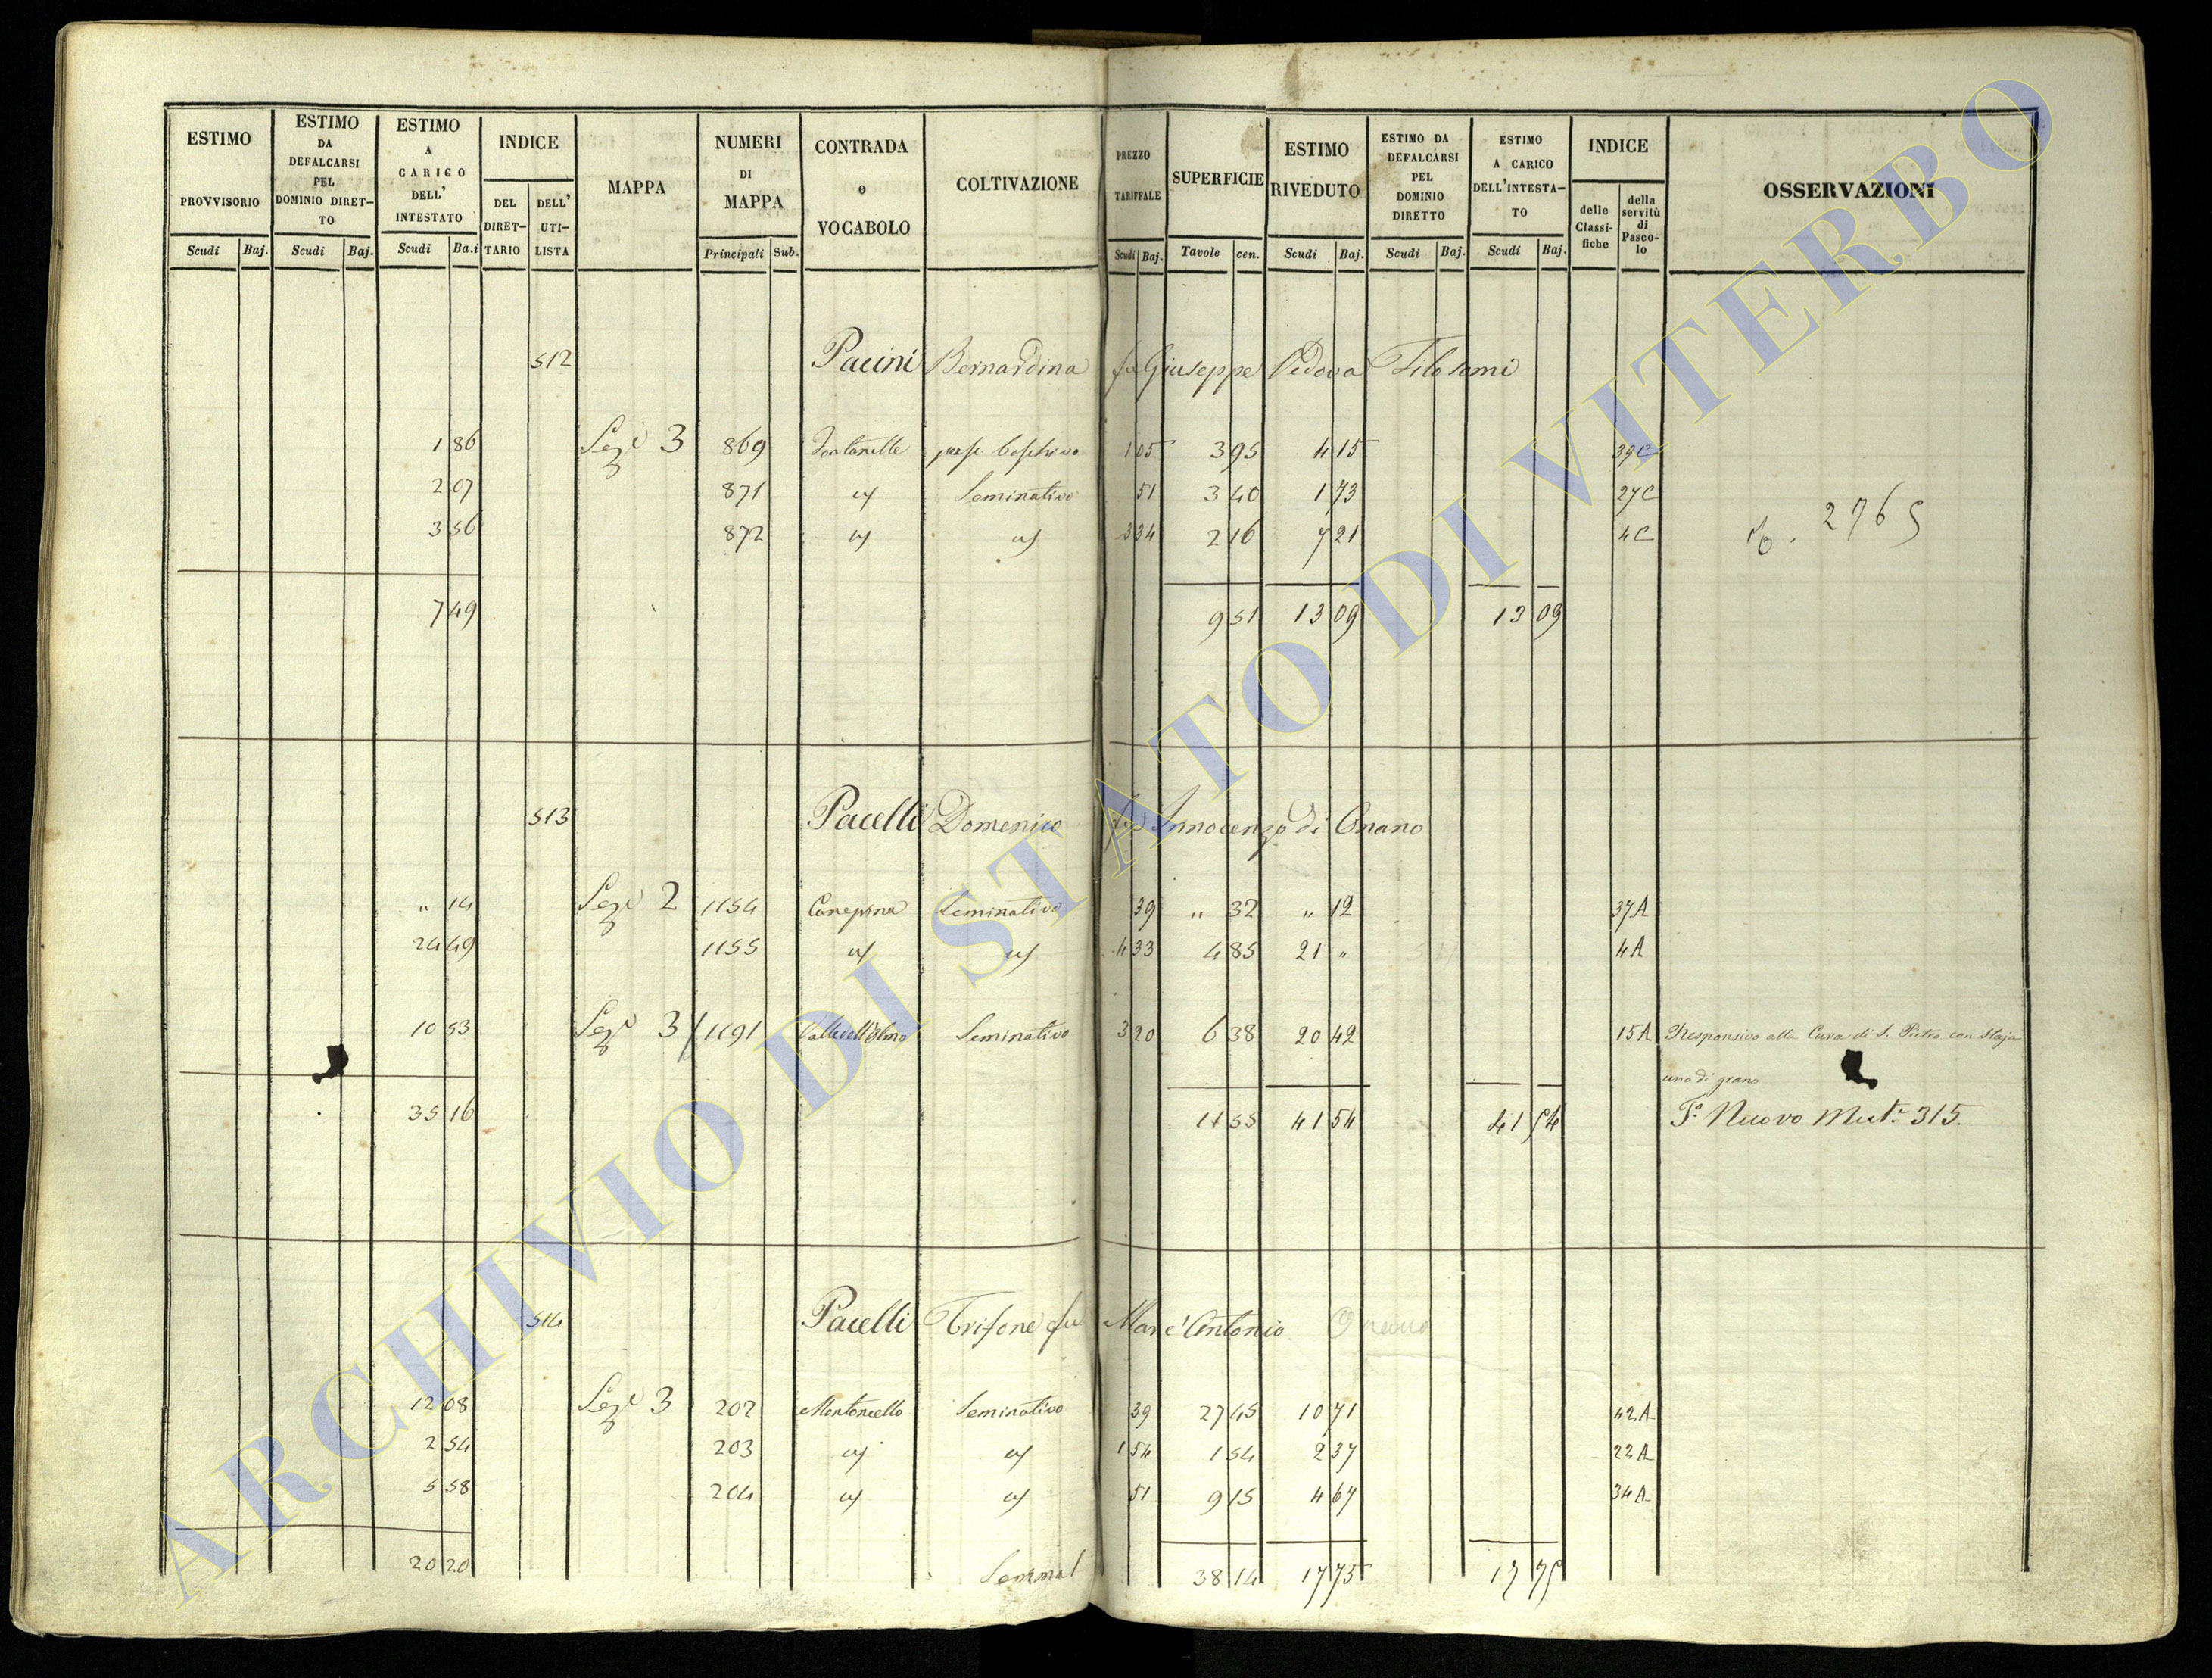 ESTIMO PROVVISORIO Scudi Baj.
ESTIMO DA DEFALCARSI PEL DOMINIO DIRET-TO Scudi Baj.
ESTIMO A CARICO DELL' INTESTATO Scudi Ba.i
INDICE DEL DIRET-TARIO DELL' UTI-LISTA
MAPPA
NUMERI DI MAPPA Principali Sub.
CONTRADA o VOCABOLO
COLTIVAZIONE
PREZZO TARIFFALE Scudi Baj.
SUPERFICIE Tavole cen.
ESTIMO RIVEDUTO Scudi Baj.
ESTIMO DA DEFALCARSI PEL DOMINIO DIRETTO Scudi Baj.
ESTIMO A CARICO DELL'INTESTA-TO Scudi Baj.
INDICE delle Classi-fiche della servitù di Pasco-lo
OSSERVAZIONI
512 Pacini Bernardina fu Giuseppe Vedova Filosomi
1 86 Sez.e 3 869 Fontanelle pasc boschivo 1 05 3 95 4 15 39C
2 07 871 id Seminativo 51 3 40 1 73 27C
3 56 872 id id 3 34 2 16 7 21 4C
2765
7 49 9 51 13 09 13 09
513 Pacelli Domenico q Innocenzo di Onano
" 14 Sez.e 2 1154 Canepina Seminativo 39 " 32 " 12 37A
24 49 1155 id id 4 33 4 85 21 " 4A
10 53 Sez.e 3 1191 Valledell'Olmo Seminativo 3 20 6 38 20 42 15A Responsivo alla Cura di S. Pietro con Staja
uno di grano
35 16 11 55 41 54 41 54 T.o Nuovo Mut.e 315.
514 Pacelli Trifone fu Marc'Antonio Onano
12 08 Sez.e 3 202 Montoncello Seminativo 39 27 45 10 71 42A
2 54 203 id id 1 54 1 54 2 37 22A
5 58 204 id id 51 9 15 4 67 34A
20 20 38 14 17 75 17 75
Seminat
ARCHIVIO DI STATO DI VITERBO